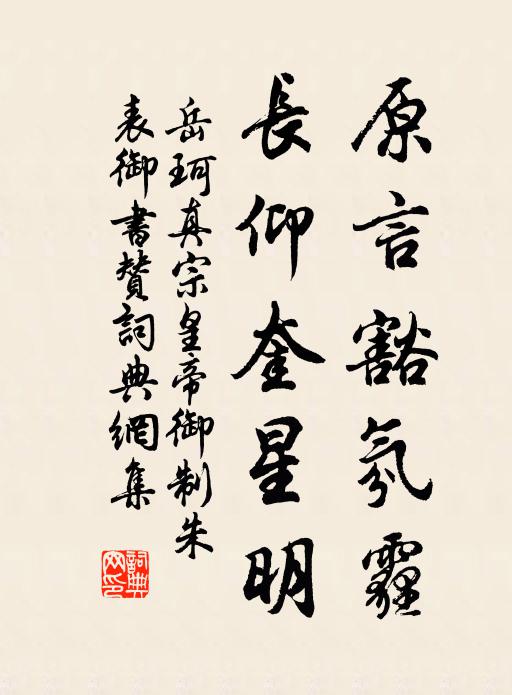 原言豁氛霾
長仰奎星明
岳珂真宗皇帝御制朱
表御書贊詞典網集
詞典网印